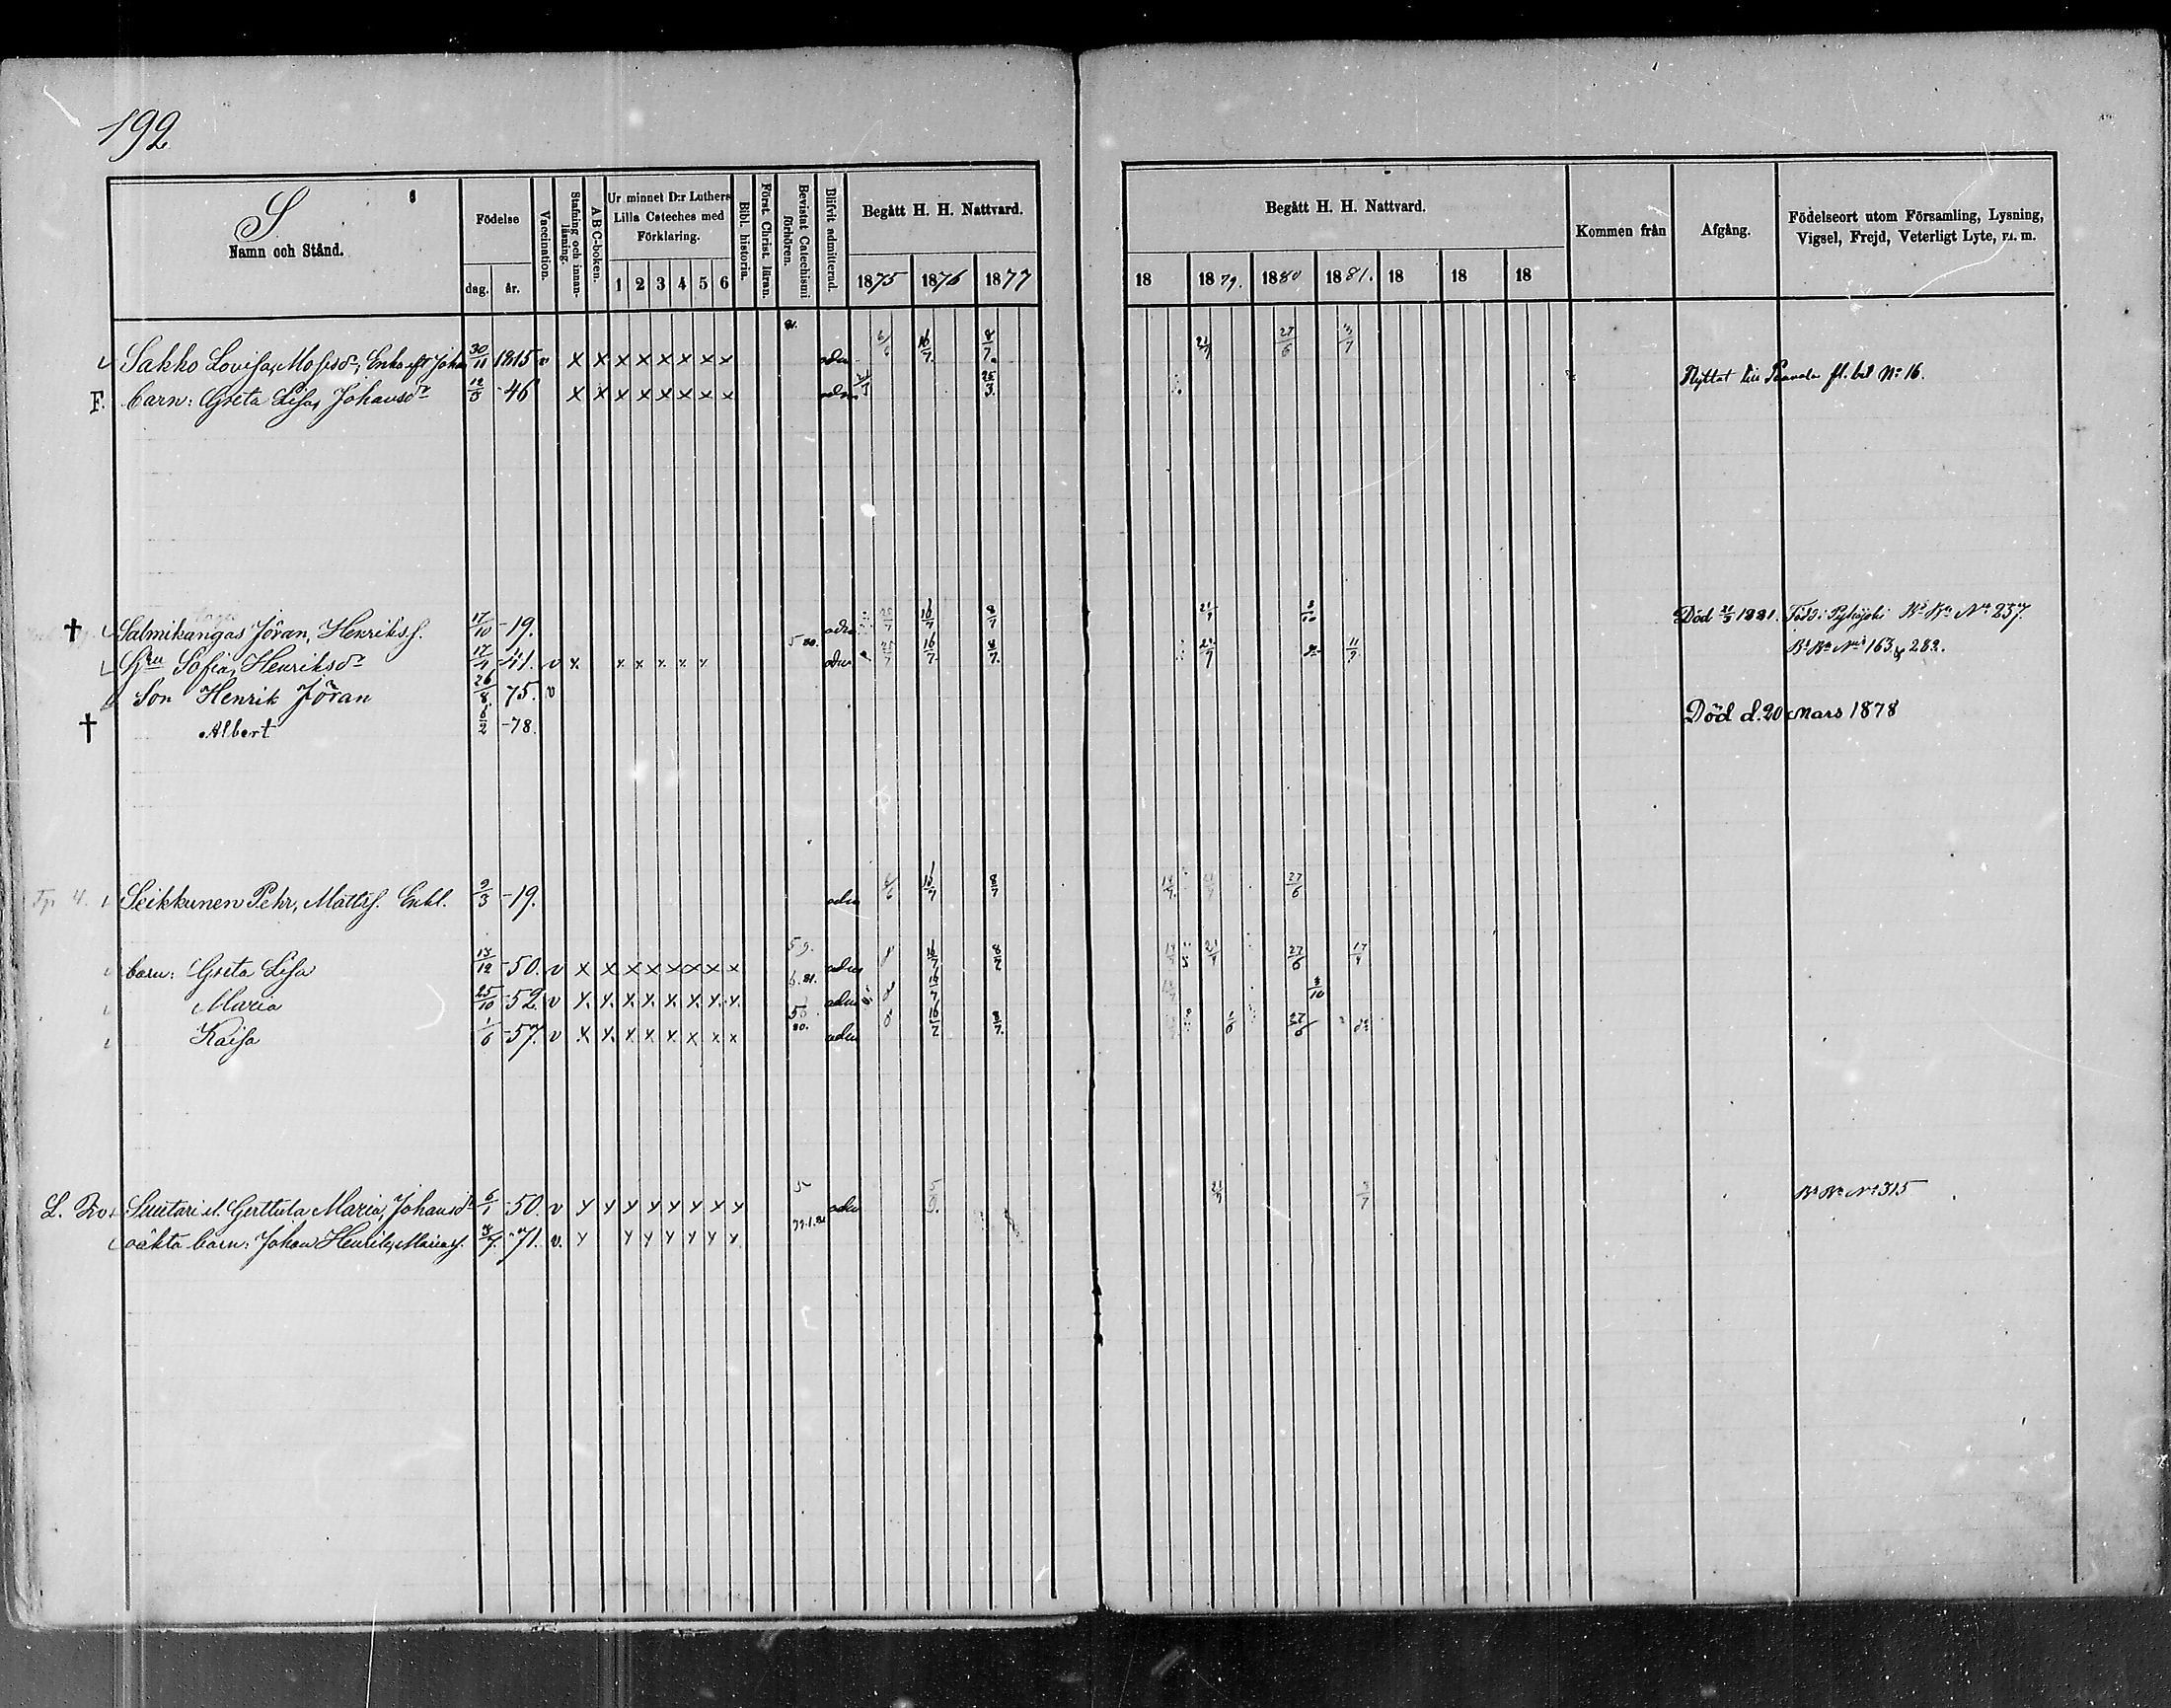 192
S
Namn och Stånd.
Födelse
dag.
år.
Vaccination.
Stafning och innanläsning.
ABC-boken.
Ur minnet D:r Luthers Lilla Cateches med Förklaring.
1 2 3 4 5 6
Bibl. historia.
Först. Christ. läran.
Bevistat Catechismi förhören.
Blifvit admitterad.
Begått H. H. Nattvard.
1875 1876 1877
Begått H. H. Nattvard.
18 1879. 1880 1881. 18 18 18
Kommen från
Afgång.
Födelseort utom Församling, Lysning, Vigsel, Frejd, Veterligt Lyte, m. m.
Sakko Lovisa, Mosesdr, Enka eft Johan 30/11 1815 v x x x x x x x x adm 6/6 16/7. 8/7. 21/7 27/6 3/7
F. barn: Greta Lisa, Johansdr 12/5 -46 x x x x x x x x adm 25/3. Flyttat till fl. bet No 16.
† Salmikangas Jöran, Henriks. 17/10 -19. adm 25/7 16/7 8/7 21/7 3/10 Död 21/5 1881. Född i Pyhäjoki No 237.
Hru Sofia, Henriksdr 17/7 -41. v x x x x x x 5 80. adm 25/7 16/7 8/7. 21/7 11/7 163 & 282.
Son Henrik Jöran 26/8 75. v
† Albert 6/2 -78. Död d. 20 Mars 1878
Seikkunen Pehr, Matts. Enkl. 9/3 -19. adm 6/6 16/7 8/7 27/6
barn: Greta Lisa 13/12 -50. v x x x x x x x x 5 9. adm 16/7 8/7 21/7 27/6 17/7
Maria 25/10 -52. v x x x x x x x x 6. 81. adm 16/7 3/10
Kaisa 1/6 -57. v x x x x x x x x 80. adm 16/7 8/7. 1/6 27/6
Suutari l. Gerttula Maria, Johansdr 6/1 -50. v x x x x x x x x 5 adm 21/7 3/7 No 315
oäkta barn: Johan Henrik, Marias. -71. v. x x x x x x x